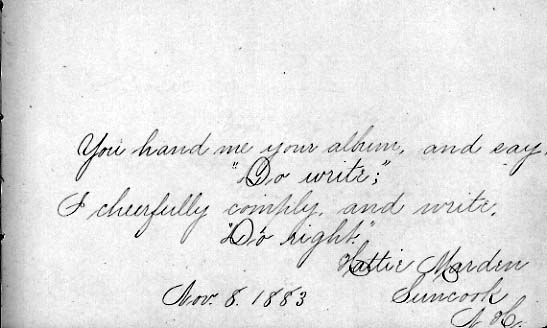 You hand me your album, and say,
"Do write;"
I cheerfully comply, and write,
"Do right."
Hattie Marden
Nov. 8. 1883 Suncook
N. H.